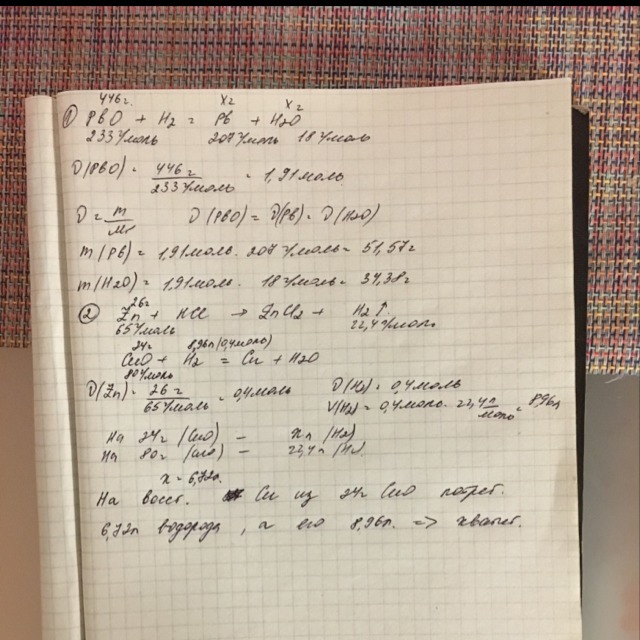 446г. xг xг
① PbO + H2 = Pb + H2O
233г/моль 207г/моль 18г/моль
D(PbO) = 446г / 233г/моль = 1,91моль
D = m / Mr D(PbO) = D(Pb) = D(H2O)
m(Pb) = 1,91моль · 207г/моль = 51,57г
m(H2O) = 1,91моль · 18г/моль = 34,38г
26г
② Zn + HCl → ZnCl2 + H2↑
65г/моль 22,4г/моль
24г 8,96л(0,4моль)
CuO + H2 = Cu + H2O
80г/моль
D(Zn) = 26г / 65г/моль = 0,4моль D(H2) = 0,4моль
V(H2) = 0,4моль · 22,4 л/моль = 8,96л
На 24г (CuO) — xл (H2)
На 80г (CuO) — 22,4л (H2)
x = 6,72л
На восст. Cu из 24г CuO потреб.
6,72л водорода, а его 8,96л. => хватит.